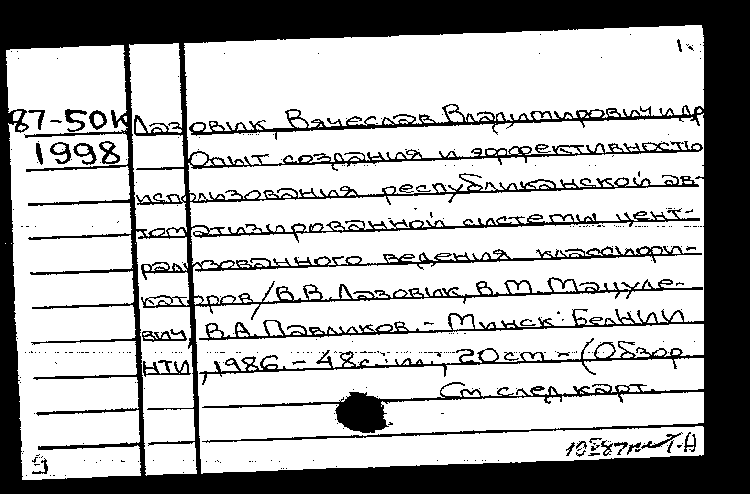 1к
87-50к Лазовик, Вячеслав Владимирович и др
1998 Опыт создания и эффективность
использования республиканской ав-
томатизированной системы цент-
рализованного ведения классифи-
каторов / В.В. Лазовик, В.М. Мацуле-
вич, В.А. Павликов. - Минск: БелНИИ
НТИ, 1986. - 48с.: ил.; 20 см - (Обзор
См след. карт.
Т.А